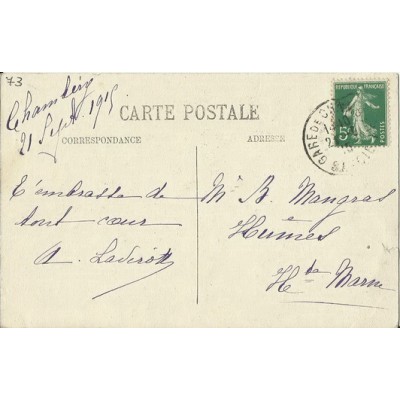 73
Chambéry
21 Sept. 1915
CARTE POSTALE
CORRESPONDANCE
ADRESSE
REPUBLIQUE FRANÇAISE
5c
POSTES
GARE DE
T'embrasse de
tout cœur
A.
Mr B. Mangras
Hûmes
Hte Marne